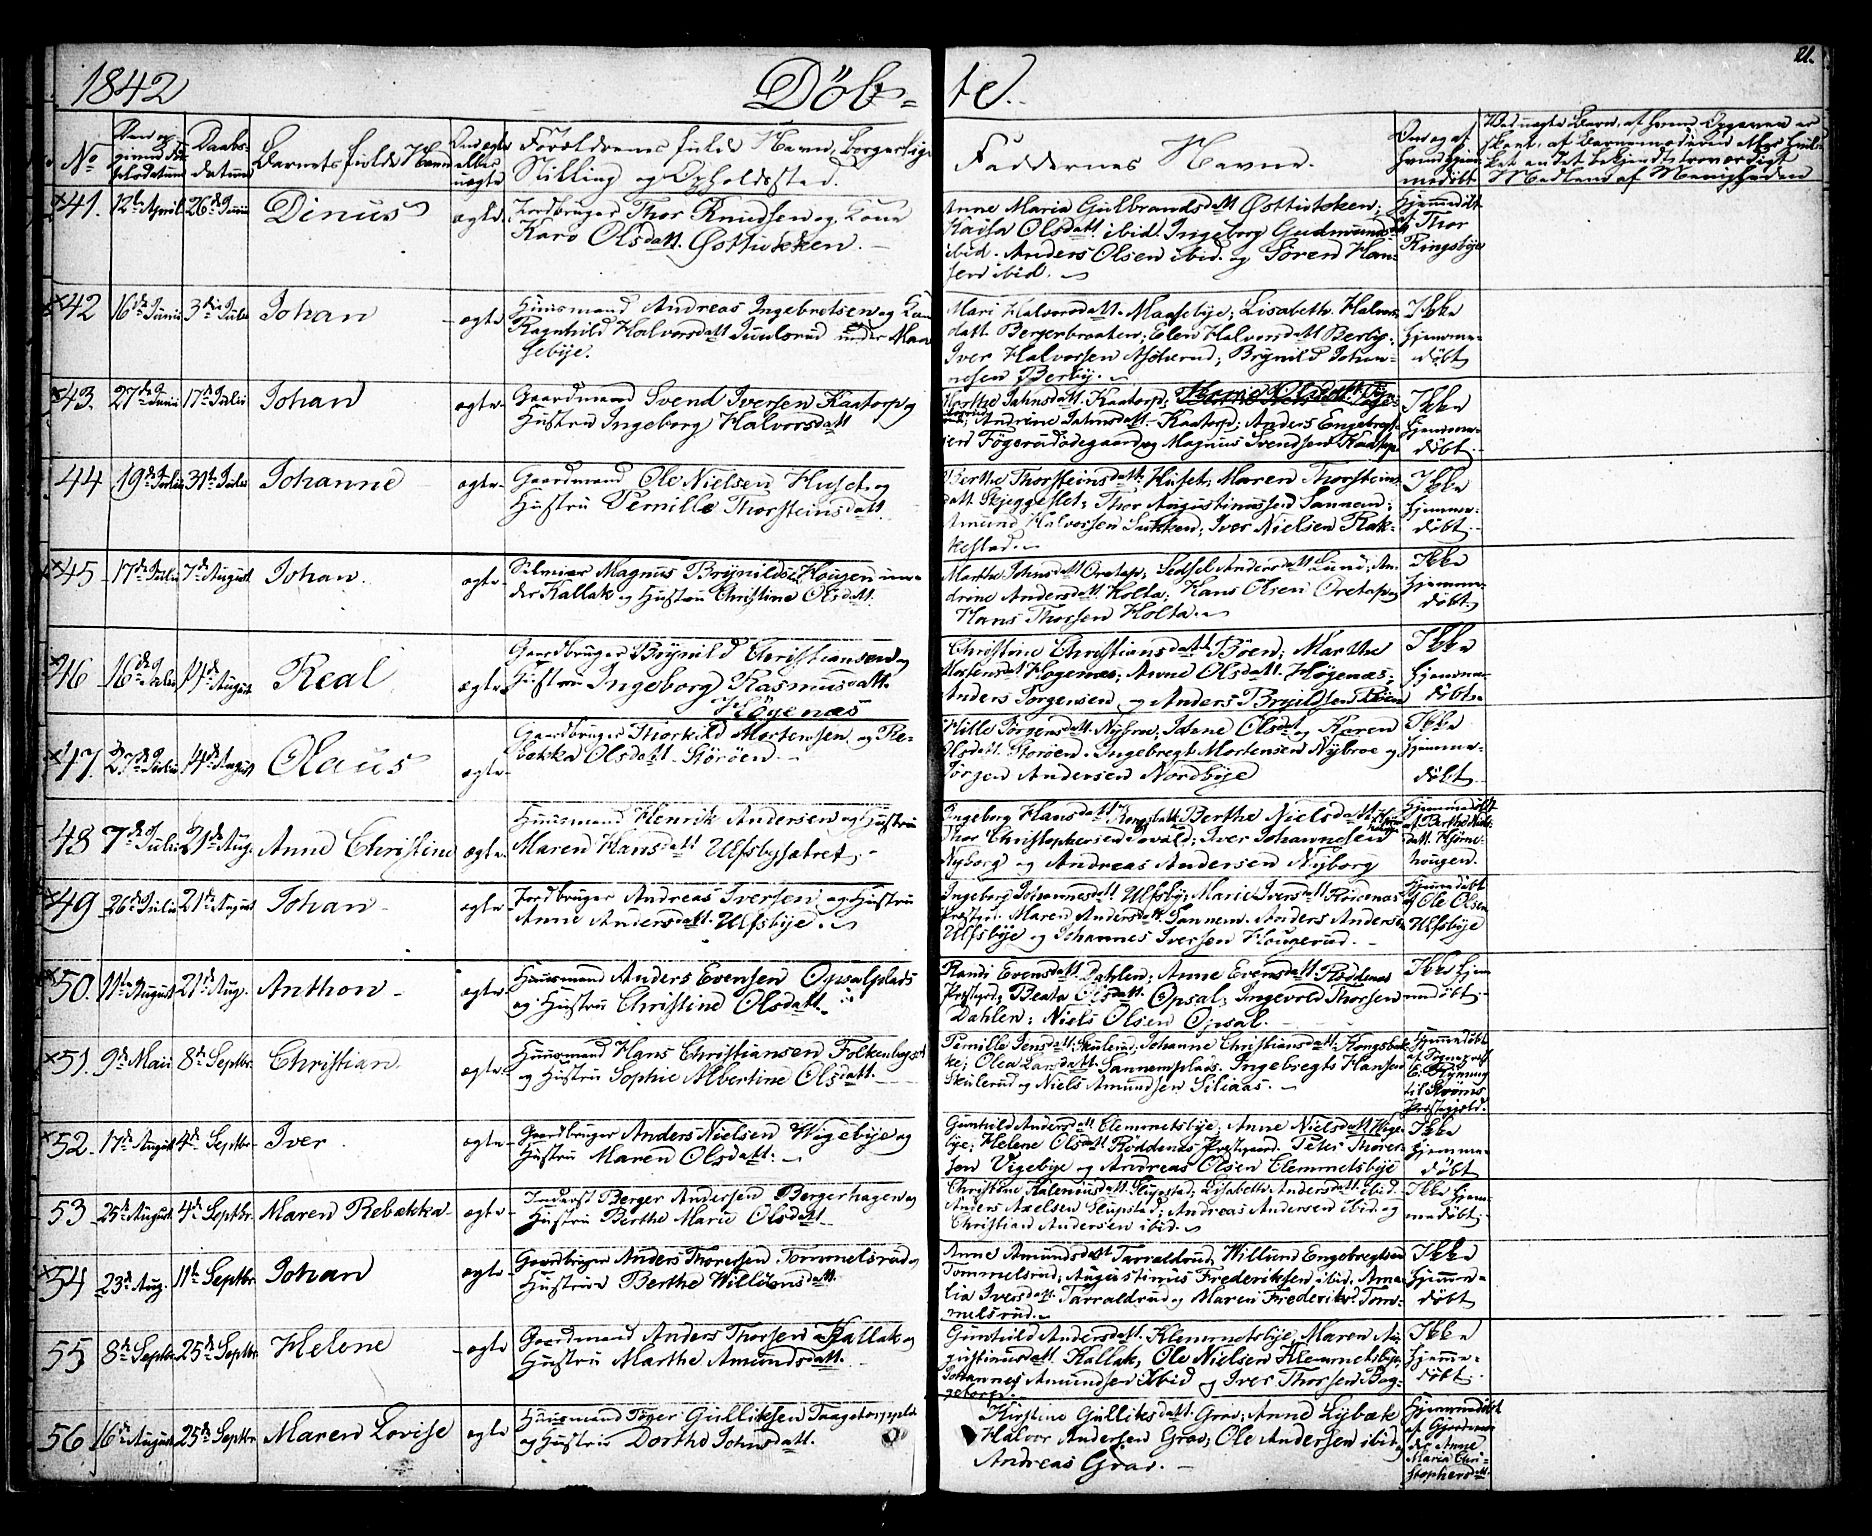 21.
1842 Döb- te.
No
Den op-
given Fød-
selsdatum
Daabs-
datum
Barnets fulde Navn
Om ægte
eller
uægte
Forældrenes fulde Navn, Borgerlige
Stilling og Opholdssted.
Faddernes Navne.
Om og af
hvem hjem-
medöbt
41. 12te April 26de Junii Dinus ægte
Jordbruger Thor Knudsen og Kone
Karo Olsdatt. Østtvitken.
Anne Maria Gulbrandsdatt Østtvitken;
Kaisa Olsdatt ibid. Ingeborg Gudmundsdatt
ibid. Anders Olsen ibid. og Søren Han-
sen ibid.
Hjemmedöbt
af Thor
Ringsbye
42 16de Junii 3die Julii Johan ægte
Huusmand Andreas Ingebretsen og Kone
Ragnhild Halvorsdatt Juulsrud under Maa-
sebye.
Mari Halvorsdatt. Maasebye; Lisabeth Halvors-
datt Bergerbraaten; Elen Halvorsdatt Berby;
Iver Halvorsen Askerud; Brynild Johan-
nesen Berby.
Ikke
hjemme-
döbt
43. 27de Junii 17de Julii Johan ægte
Gaardmand Svend Iversen Kaatorp og
Hustru Ingeborg Halvorsdatt
Marthe Johnsdatt. Kaatorp;
Andrine Johnsdatt. Kaatorp; Anders Engebregt-
sen Fögerudödegaard og Magnus Svendsen Kaatorp
Ikke
hjemme-
döbt
44 19de Julii 31te Julii Johanne ægte
Gaardmand Ole Nielsen Huset og
Hustru Pernille Thorsteinsdatt.
Berthe Thorsteinsdatt. Huset; Maren Thorsteins-
datt Skjeggeslet; Thor Augustinussen Sannem;
Amund Halvorsen Sukken; Iver Nielsen Rak-
kestad.
Ikke
hjemme-
döbt
45 17de Julii 7de August Johan. ægte
Magnus Brynilds. Hougen un-
der Kallak og Hustru Christine Olsdatt.
Marthe Johnsdatt Oretorp; Sedsel Andersdatt Lund; An-
drine Andersdatt. Holta; Hans Olsen Oretorp og
Hans Thorsen Holta.
Ikke
hjemme-
döbt
46 16de Julii 14de August Real ægte
Gaardbruger Brynild Christiansen og
Hustru Ingeborg Rasmusdatt.
Högenæs
Christine Christiansdatt Böen; Marthe
Mortensdat Högenæs; Anne Olsdatt. Högenæs;
Anders Jorgensen og Anders Brynildsen Böen
Ikke
hjemme-
döbt
47. 27de Julii 14de August Olaus ægte
Gaardbruger Thorkild Mortensen og Re-
bekka Olsdatt. Störöen.
Hille Jörgensdatt. Nybroe, Johne Olsdat og Karen
Olsdatt. Storöen. Ingebregt Mortensen Nybroe og
Jörgen Andersen Nordbye
Ikke
hjemme-
döbt
48 7de Julii 21de Aug. Anne Christine ægte
Huusmand Henrik Andersen og Hustru
Maren Hansdatt Ulfsbysætret.
Ingeborg Hansdatt Berthe Nielsdatt
Thor Christophersen; Iver Johannesen
Nyborg og Andreas Andersen Nyborg
Hjemmedöbt
af Berthe Niels-
datt. Hjörne-
hougen.
49 26de Julii 21de August Johan ægte
Jordbruger Andreas Iversen og Hustru
Anne Andersdatt. Ulfsbye.
Ingeborg Johannesdatt Ulfsby; Marie Iversdatt. Rödenæs
Prestgrd. Maren Andersdatt. Sannem. Anders Anders.
Ulfsbye og Johannes Iversen Hougerud.
Hjemmedöbt
af Ole Olsen
Ulfsbye
50. 11te August 21de Aug. Anthon ægte
Huusmand Anders Evensen Opsalplads
og Hustru Christine Olsdatt.
Randi Evensdatt. Dahlen; Anne Evensdatt. Röddenæs
Prestgrd; Beata Olsdatt. Opsal; Ingevold Thorsen
Dahlen; Niels Olsen Opsal.
Ikke hjem-
medöbt
51. 9de Maii 8de Septbr. Christian ægte
Huusmand Hans Christiansen
og Hustru Sophie Albertine Olsdatt.
Pernille Jensdatt. Skulerud; Johanne Christiansdatt. Kongsbak-
ke; Olea Larsdatt. Sannemplads. Ingebregt Hansen
Skulerud og Niels Amundsen Siliaas.
Hjemmedöbt
af Sognepræst
til Strøms
Præstegjeld.
52. 17de August 4de Septbr. Iver. ægte
Gaardbruger Anders Nielsen Wigebye og
Hustru Maren Olsdatt.
Gunhild Andersdatt Clemmetsbye; Anne Nielsdatt. Wige-
bye; Helene Olsdatt. Röddenæs Prestgaard. Peter Thorer-
sen Vigebye og Andreas Olsen Clemmetsbye
Ikke
hjemme-
döbt
53 25de August 4de Septbr. Maren Rebekka ægte
Inderst Berger Andersen Bergerhagen og
Hustru Berthe Marie Olsdatt
Christine Slupstad; Lisabeth Andersdatt. ibid.
Anders Axelsen Slupstad; Andreas Andersen ibid. og
Christian Andersen ibid.
Ikke hjem-
medöbt
54 23de Aug. 11te Septbr. Johan ægte
Gaardbruger Anders Thoresen Tommelsrud og
Hustrue Berthe Williumsdatt.
Anne Amundsdatt Tarraldrud; Willium Engebregtsen
Tommelsrud; Augustinus Frederiksen ibid. Ama-
lia Iversdatt. Tarraldrud og Maren Frederiksd. Tom-
melsrud.
Ikke
hjemme-
döbt
55 8de Septbr. 25de Septbr. Helene ægte
Gaardmand Anders Thorsen Kallak og
Hustru Marthe Amundsdatt.
Gunhild Andersdatt. Klemmetsbye; Maren Au-
gustinusdatt. Kallak; Ole Nielsen Klemmetsbye;
Johannes Amundsen ibid og Iver Thorsen Bag-
getorp.
Ikke
hjemme-
döbt
56 16de August 25de Septbr. Maren Lovise ægte
Huusmand Gulliksen
og Hustru Dorthe Johnsdatt.
Kirstine Gulliksdatt. Grav; Anne Lybæk
Halvor Andersen Grav; Ole Andersen ibid
Andreas Grav.
Hjemmedöbt
af Gjordemo-
der Anne
Maria Chri-
stophersdatt.